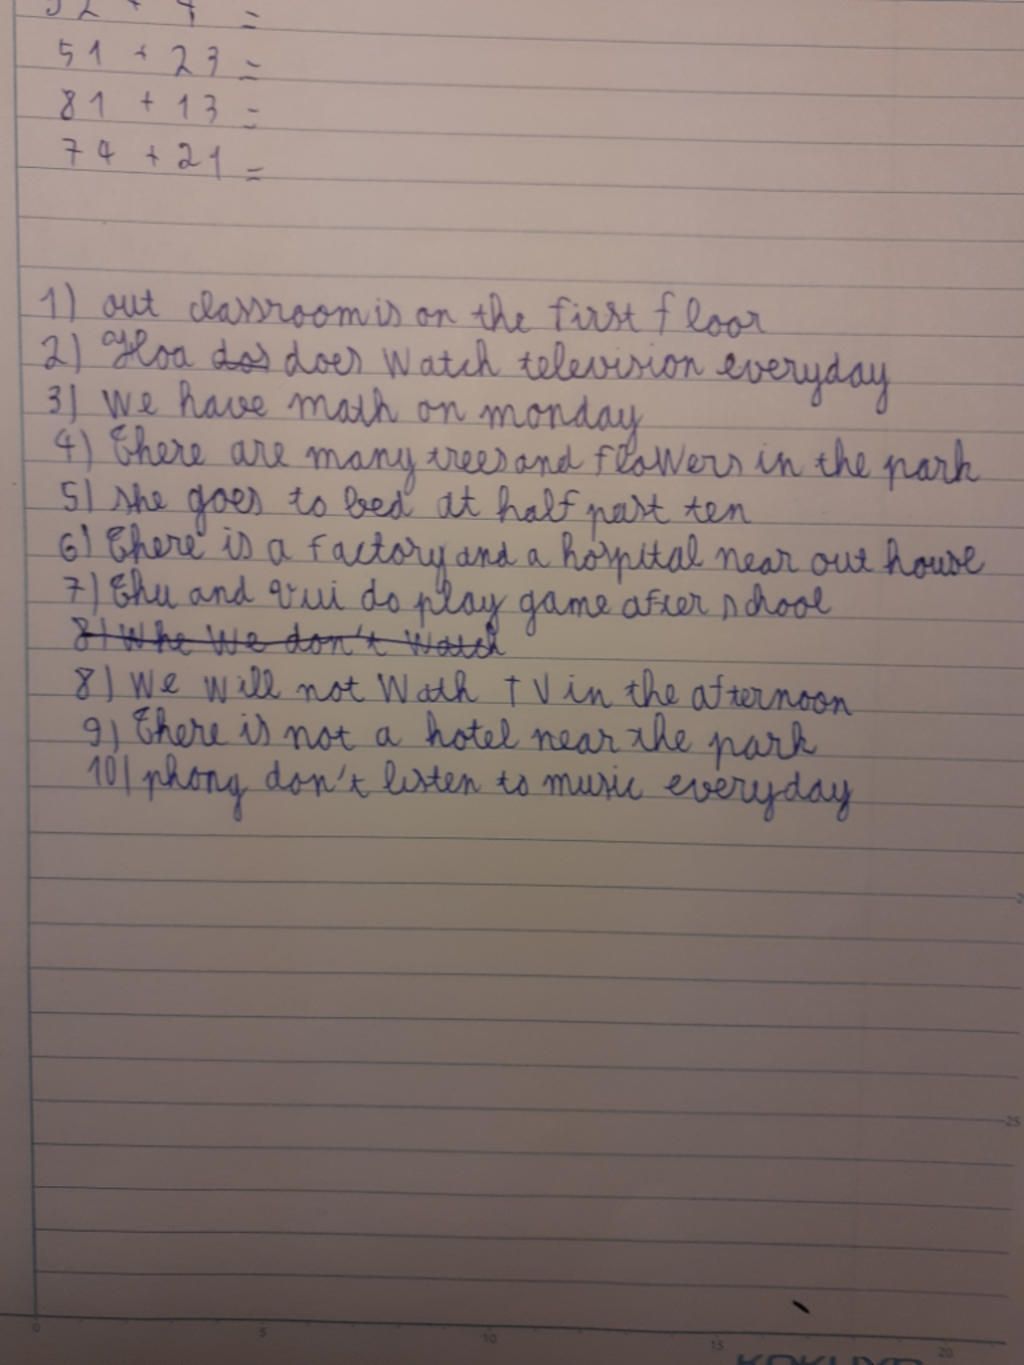 51 + 23 =
81 + 13 =
74 + 21 =
1) out classroom is on the first floor
2) Hoa dos does watch television everyday
3) we have math on monday
4) there are many trees and flowers in the park
5) she goes to bed at half past ten
6) there is a factory and a hospital near out house
7) thu and vui do play game after school
8) Whe We don't watch
8) we will not wath TV in the afternoon
9) there is not a hotel near the park
10) phong don't listen to music everyday
25
0 5 10 15 20